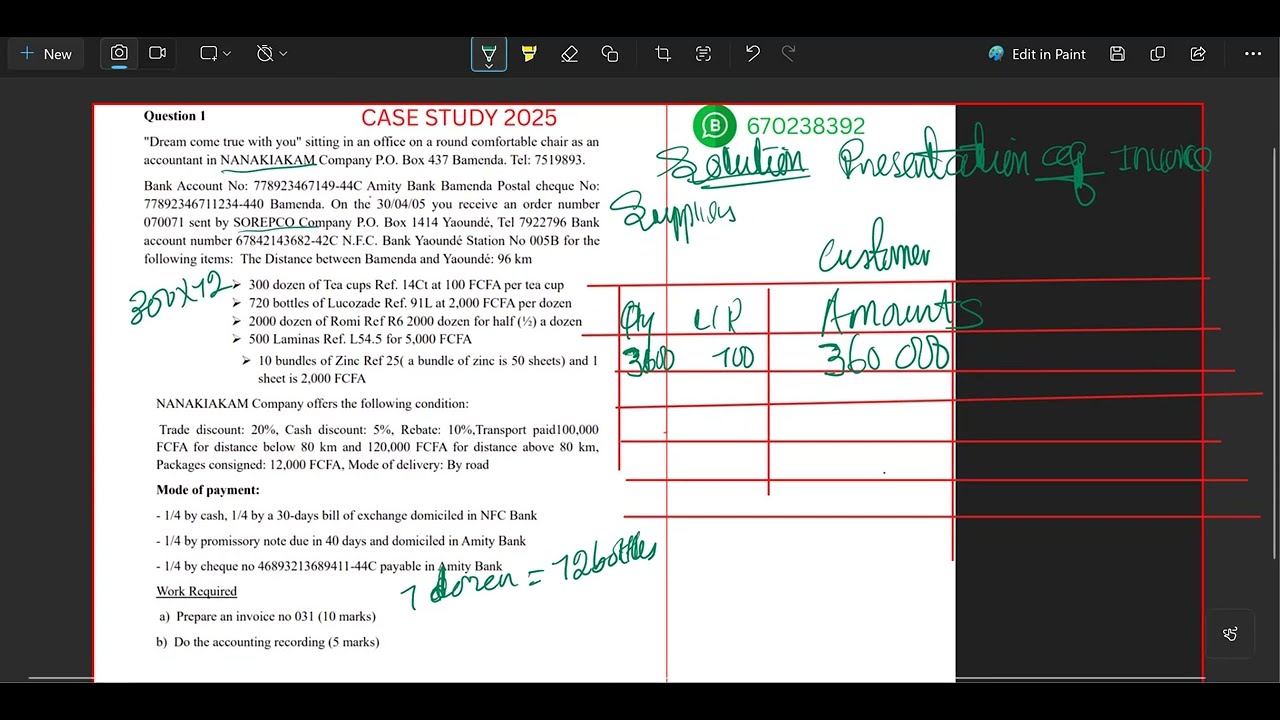 New
Edit in Paint
Question 1
CASE STUDY 2025
670238392
"Dream come true with you" sitting in an office on a round comfortable chair as an
accountant in NANAKIAKAM Company P.O. Box 437 Bamenda. Tel: 7519893.
Bank Account No: 778923467149-44C Amity Bank Bamenda Postal cheque No:
77892346711234-440 Bamenda. On the 30/04/05 you receive an order number
070071 sent by SOREPCO Company P.O. Box 1414 Yaoundé, Tel 7922796 Bank
account number 67842143682-42C N.F.C. Bank Yaoundé Station No 005B for the
following items: The Distance between Bamenda and Yaoundé: 96 km
300x12
➢ 300 dozen of Tea cups Ref. 14Ct at 100 FCFA per tea cup
➢ 720 bottles of Lucozade Ref. 91L at 2,000 FCFA per dozen
➢ 2000 dozen of Romi Ref R6 2000 dozen for half (½) a dozen
➢ 500 Laminas Ref. L54.5 for 5,000 FCFA
➢ 10 bundles of Zinc Ref 25( a bundle of zinc is 50 sheets) and 1
sheet is 2,000 FCFA
NANAKIAKAM Company offers the following condition:
Trade discount: 20%, Cash discount: 5%, Rebate: 10%,Transport paid100,000
FCFA for distance below 80 km and 120,000 FCFA for distance above 80 km,
Packages consigned: 12,000 FCFA, Mode of delivery: By road
Mode of payment:
- 1/4 by cash, 1/4 by a 30-days bill of exchange domiciled in NFC Bank
- 1/4 by promissory note due in 40 days and domiciled in Amity Bank
- 1/4 by cheque no 46893213689411-44C payable in Amity Bank
1 dozen = 12 bottles
Work Required
a) Prepare an invoice no 031 (10 marks)
b) Do the accounting recording (5 marks)
Solution Presentation of Invoice
Customer
Qty U/P Amounts
3600 100 360 000